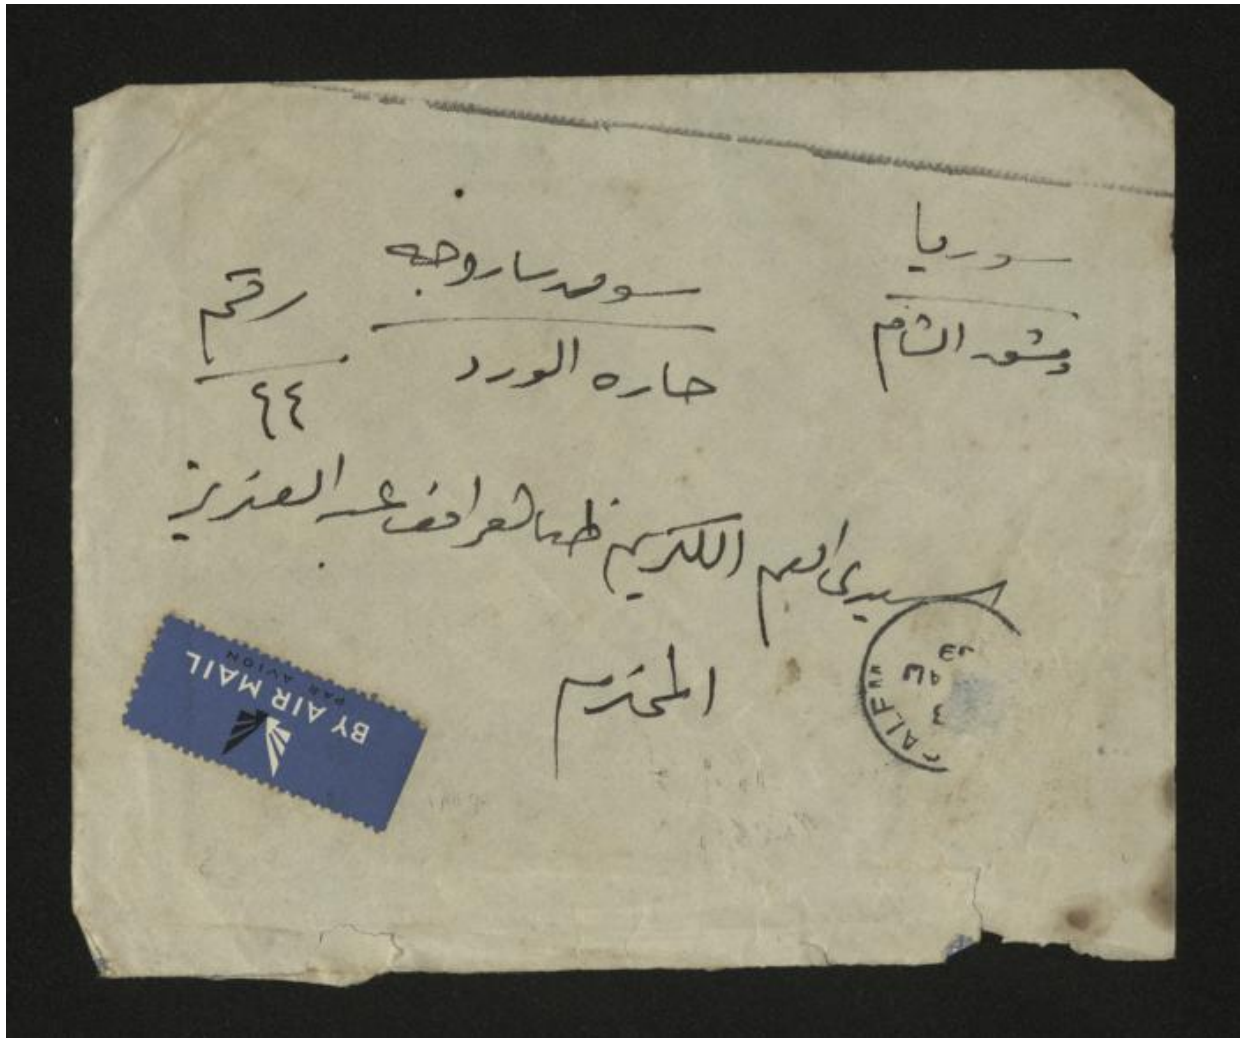 سوريا
دمشق الشام
سوق ساروجه
حاره الورد
رقم
٤٤
سيدي العم الكريم عبد العزيز
المحترم
BY AIR MAIL
PAR AVION
3
AU